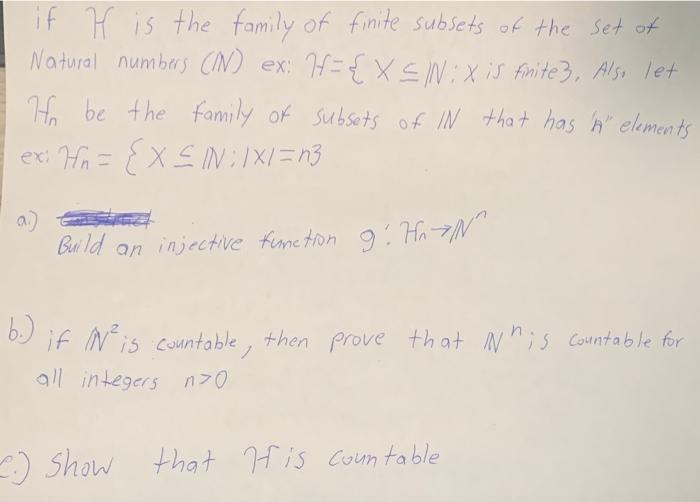 if H is the family of finite subsets of the set of
Natural numbers (ℕ) ex: H={X⊆ℕ: X is finite}, Also let
Hn be the family of subsets of ℕ that has "n" elements
ex: Hn = {X⊆ℕ: |X|=n}
a.)
Build an injective function g: Hn→ℕⁿ
b.) if ℕ² is countable, then prove that ℕⁿ is countable for
all integers n>0
c.) Show that H is countable